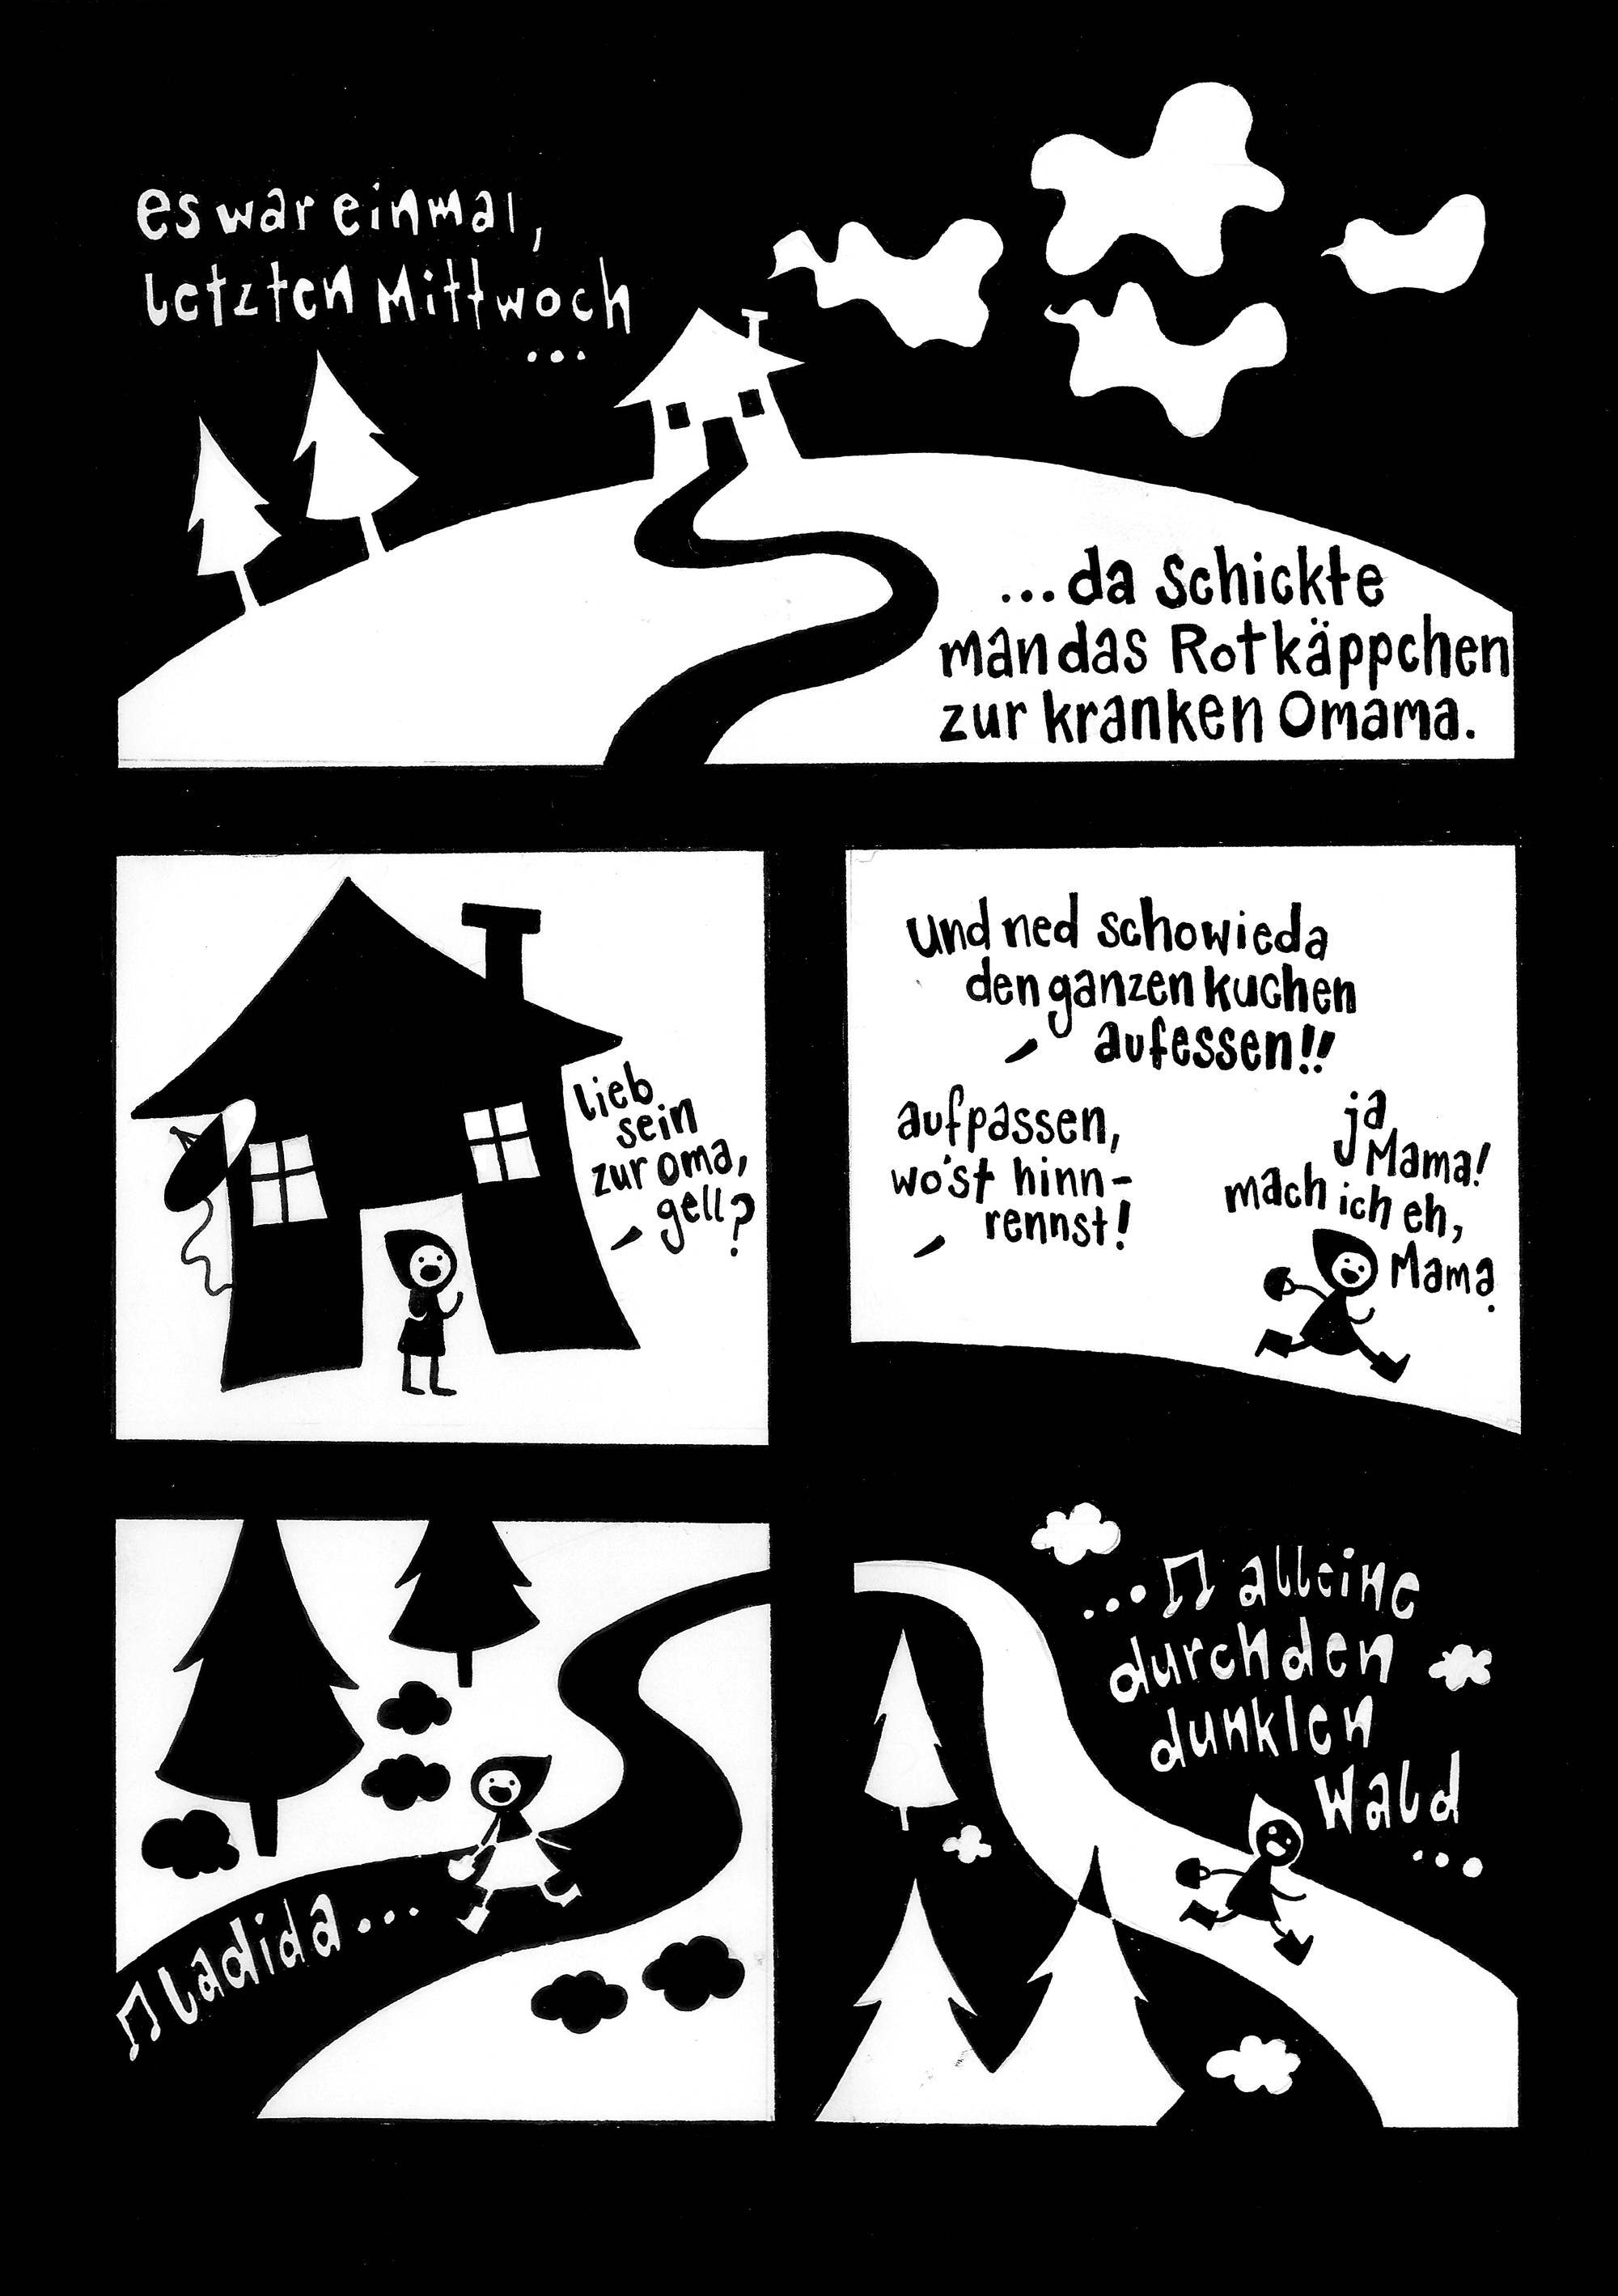 es war einmal,
letzten Mittwoch
...
...da schickte
man das Rotkäppchen
zur kranken Omama.
lieb
sein
zur oma,
gell?
und ned schowieda
den ganzen kuchen
aufessen!!
aufpassen,
wo'st hinn-
rennst!
ja
Mama!
mach ich eh,
Mama.
♫ ladida...
...♫ alleine
durch den
dunklen
Wald
...